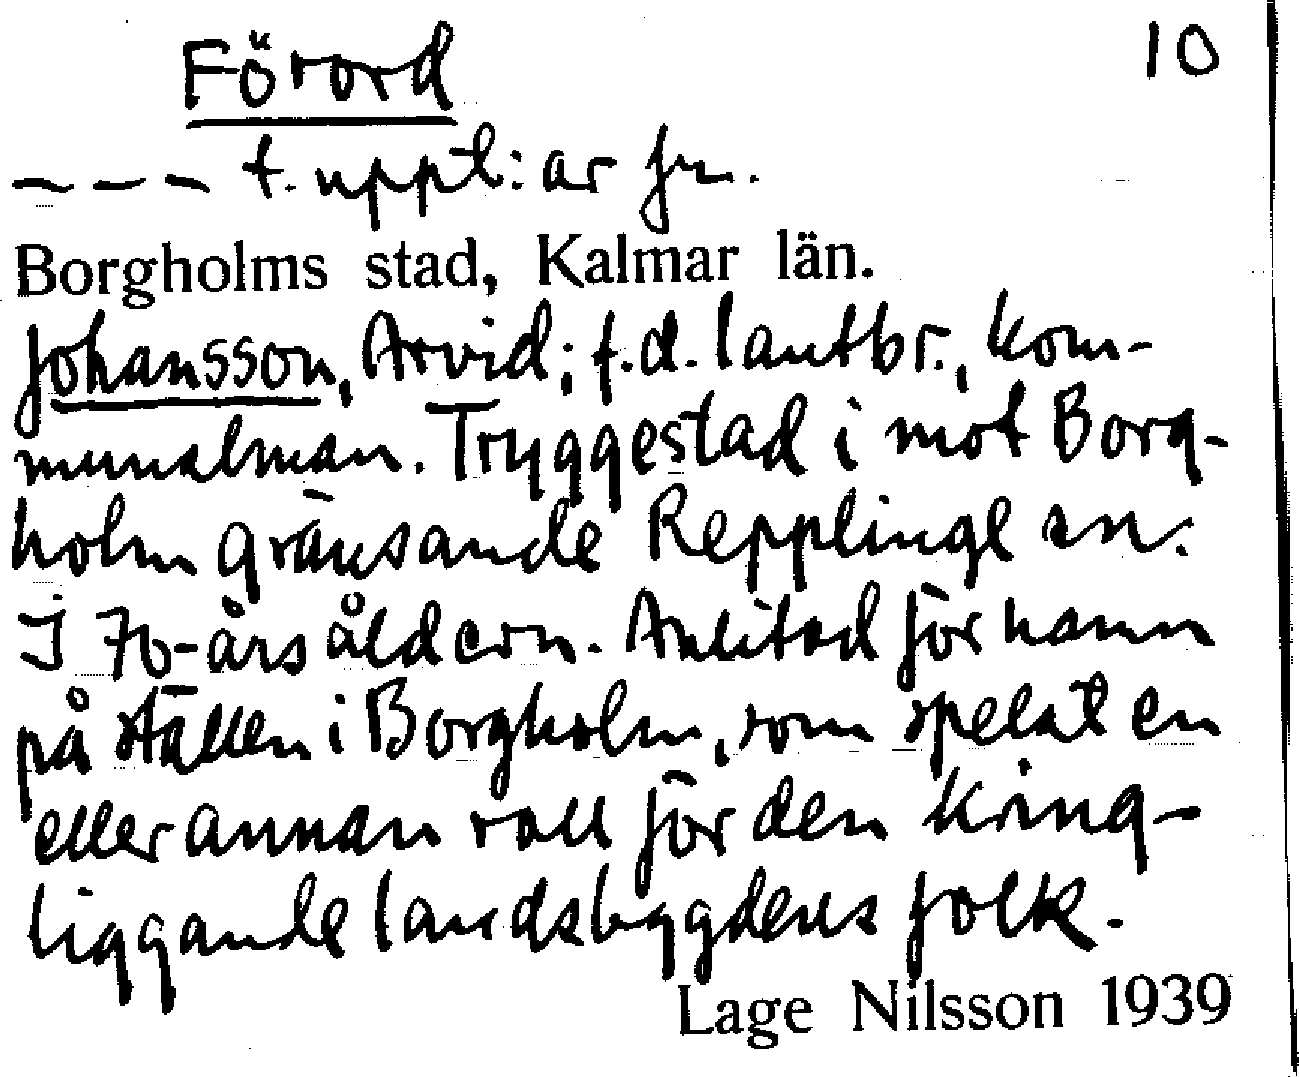 Förord 10
— — — t. uppt:ar fr.
Borgholms stad, Kalmar län.
Johansson, Arvid; f.d. lantbr., kom-
munalman. Tryggestad i mot Borg-
holm gränsande Repplinge sn.
I 70-årsåldern. Anlitad för namn
på ställen i Borgholm, som spelat en
eller annan roll för den kring-
liggande landsbygdens folk.
Lage Nilsson 1939